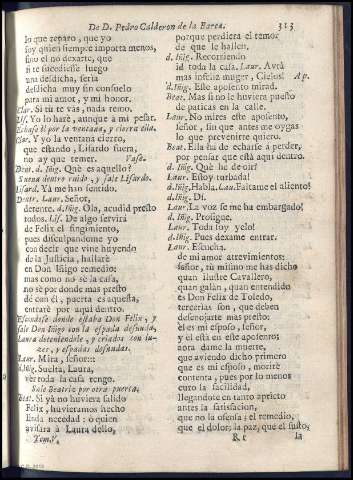 De D. Pedro Calderon de la Barca. 313
lo que reparo, que yo
soy quien siempre importa menos,
sino el no dexarte, que
si te sucediesse luego
una desdicha, seria
desdicha muy sin consuelo
para mi amor, y mi honor.
Clar. Si tù te vàs, nada temo.
Lis. Yo lo harè, aunque à mi pesar.
Echase èl por la ventana, y cierra ella.
Clar. Y yo la ventana cierro,
que estando, Lisardo fuera,
no ay que temer. Vase.
Dent. d. Iñig. Què es aquello?
Suena dentro ruido, y sale Lisardo.
Lisard. Yà me han sentido.
Dentr. Laur. Señor,
detente. d. Iñig. Ola, acudid presto
todos. Lis. De algo servirà
de Felix el fingimiento,
pues disculpandome yo
con decir que vine huyendo
de la Justicia, hallarè
en Don Iñigo remedio;
mas como no sè la casa,
no sè por donde mas presto
dè con èl, puerta es aquesta,
entrarè por aqui dentro.
Escondese donde estaba Don Felix, y
sale Don Iñigo con la espada desnuda,
Laura deteniendole, y criados con luces,
y espadas desnudas.
Laur. Mira, señor:::
d. Iñig. Suelta, Laura,
vèr toda la casa tengo.
Sale Beatriz por otra puerta.
Beat. Si yà no huviera salido
Felix, huvieramos hecho
linda necedad: ò quien
avisàra à Laura dello,
Tom. V.
porque perdiera el temor
de que le hallen.
d. Iñig. Recorriendo
id toda la casa. Laur. Avrà
mas infeliz muger, Cielos! Ap.
d. Iñig. Este aposento mirad.
Beat. Mas si no le huviera puesto
de paticas en la calle.
Laur. No mires este aposento,
señor, sin que antes me oygas
lo que prevenirte quiero.
Beat. Ella ha de echarse à perder,
por pensar que està aqui dentro.
d. Iñig. Què he de oir!
Laur. Estoy turbada!
d. Iñig. Habla. Lau. Faltame el aliento!
d. Iñig. Dì.
Laur. La voz se me ha embargado!
d. Iñig. Prosigue.
Laur. Toda soy yelo!
d. Iñig. Pues dexame entrar.
Laur. Escucha.
de mi amor atrevimientos:
señor, tù mismo me has dicho
quan ilustre Cavallero,
quan galàn, quan entendido
es Don Felix de Toledo,
tercerias son, que deben
desenojarte mas presto:
èl es mi esposo, señor,
y èl està en este aposento:
aora dame la muerte,
que aviendo dicho primero
que es mi esposo, morirè
contenta, pues por lo menos
euro la facilidad,
llegandote en tanto aprieto
antes la satisfacion,
que no la ofensa; el remedio,
que el dolor; la paz, que el susto;
Rr la